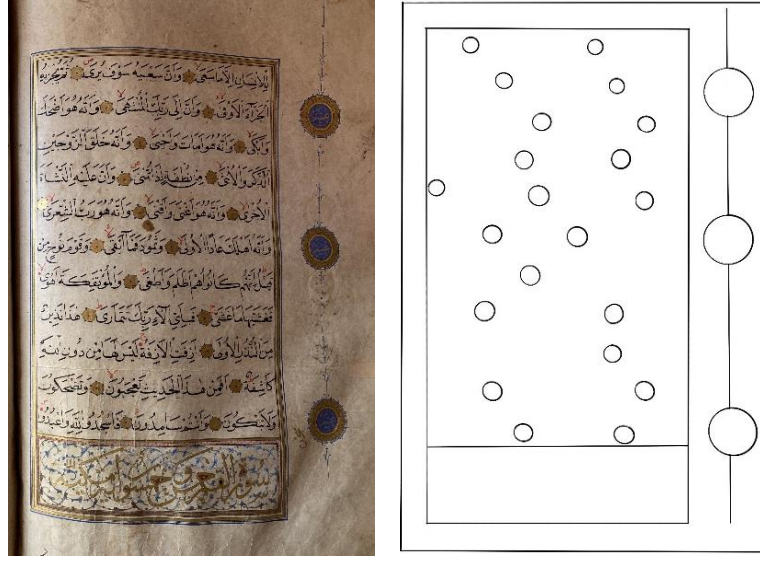 للإنسان إلا ما سعى وأن سعيه سوف يرى ثم يجزيه
الجزاء الأوفى وأن إلى ربك المنتهى وأنه هو أضحك
وأبكى وأنه هو أمات وأحيى وأنه خلق الزوجين
الذكر والأنثى من نطفة إذا تمنى وأن عليه النشأة
الأخرى وأنه هو أغنى وأقنى وأنه هو رب الشعرى
وأنه أهلك عادا الأولى وثمود فما أبقى وقوم نوح من
قبل إنهم كانوا هم أظلم وأطغى والمؤتفكة أهوى
فغشيها ما غشى فبأي آلاء ربك تتمارى هذا نذير
من النذر الأولى أزفت الآزفة ليس لها من دون الله
كاشفة أفمن هذا الحديث تعجبون وتضحكون
ولا تبكون وأنتم سامدون فاسجدوا لله واعبدوا
سورة القمر